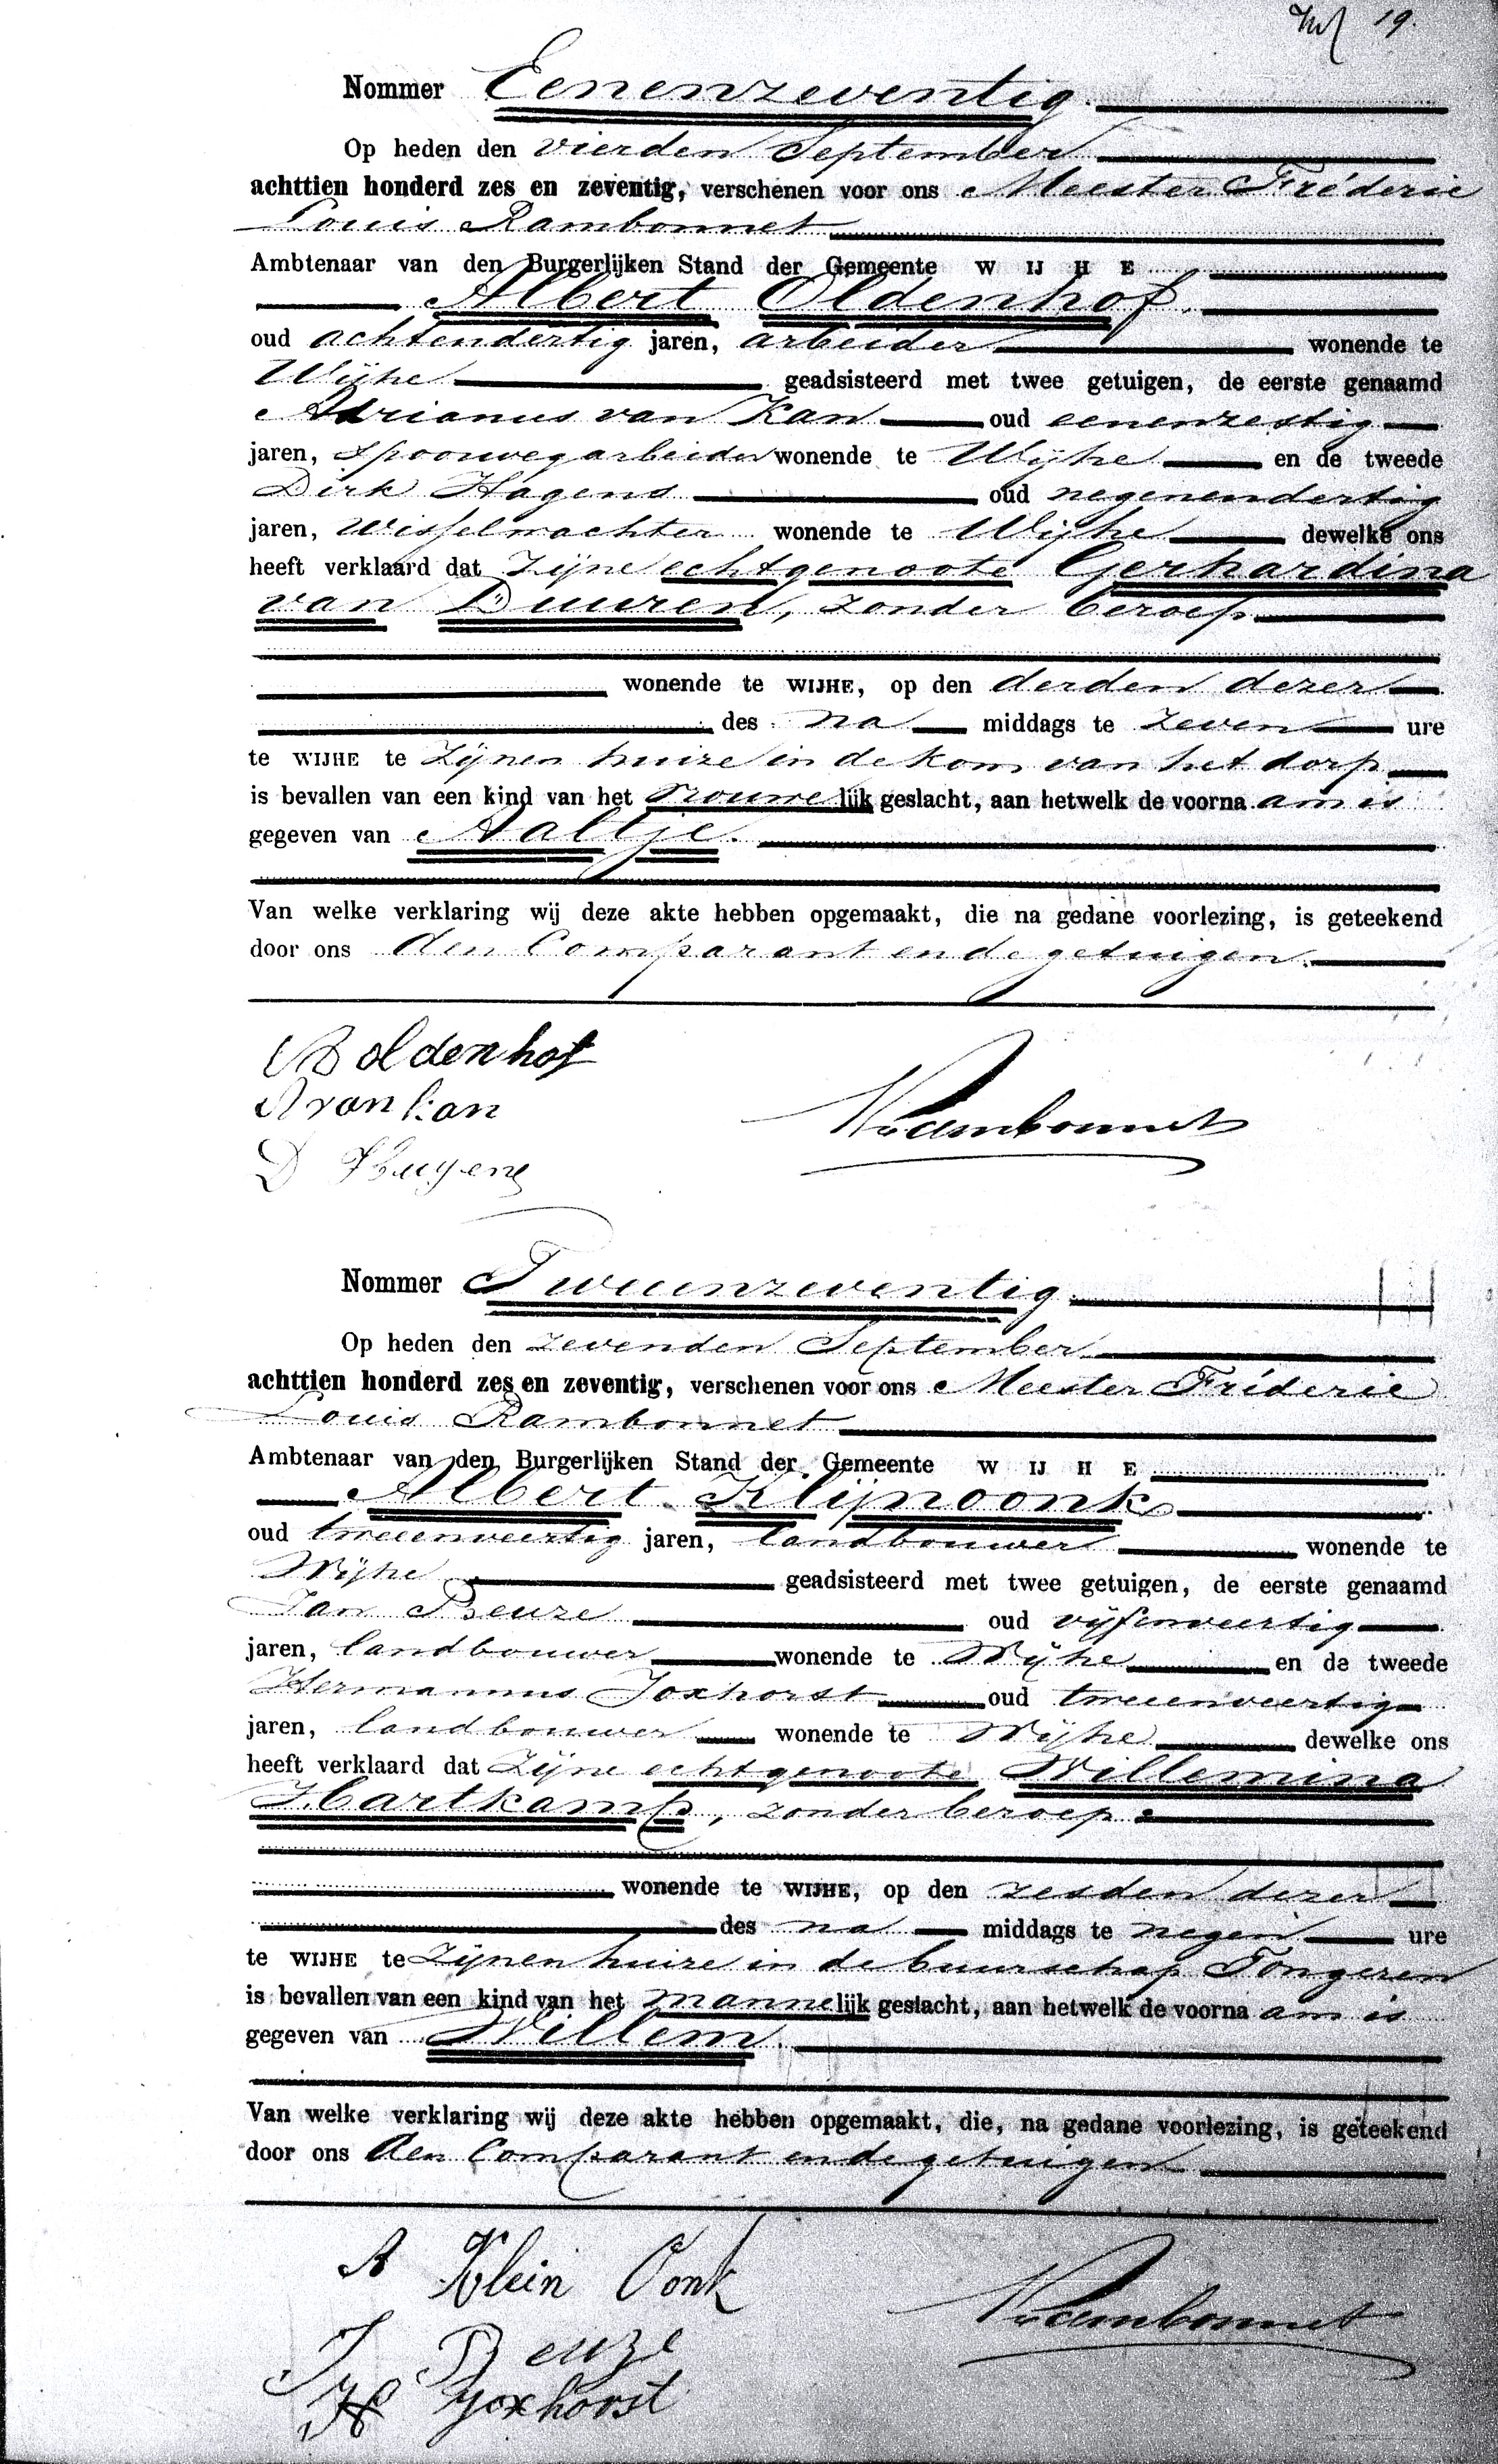 19.
Nommer Eenenzeventig.
Op heden den vierden September
achttien honderd zes en zeventig, verschenen voor ons Meester Fréderic
Louis Rambonnet
Ambtenaar van den Burgerlijken Stand der Gemeente WIJHE
Albert Oldenhof.
oud achtendertig jaren, arbeider wonende te
Wijhe geadsisteerd met twee getuigen, de eerste genaamd
Adrianus van Kan oud eenenzestig
jaren, spoorwegarbeider wonende te Wijhe en de tweede
Dirk Hagens oud negenendertig
jaren, wisselwachter wonende te Wijhe dewelke ons
heeft verklaard dat zijne echtgenoote Gerhardina
van Duuren, zonder beroep
wonende te WIJHE, op den derden dezer
des na middags te zeven ure
te WIJHE te zijnen huize in de kom van het dorp
is bevallen van een kind van het vrouwelijk geslacht, aan hetwelk de voorna am is
gegeven van Aaltje.
Van welke verklaring wij deze akte hebben opgemaakt, die na gedane voorlezing, is geteekend
door ons den Comparant en de getuigen.
A oldenhof
A van kan
Rambonnet
D
Nommer Tweeenzeventig.
Op heden den zevenden September
achttien honderd zes en zeventig, verschenen voor ons Meester Fréderic
Louis Rambonnet
Ambtenaar van den Burgerlijken Stand der Gemeente WIJHE
Albert Klijnoonk
oud tweeenveertig jaren, landbouwer wonende te
Wijhe geadsisteerd met twee getuigen, de eerste genaamd
Jan Beuze oud vijfenveertig
jaren, landbouwer wonende te Wijhe en de tweede
Hermannus Joxhorst oud tweeenveertig
jaren, landbouwer wonende te Wijhe dewelke ons
heeft verklaard dat zijne echtgenoote Willemina
Hartkamp, zonder beroep
wonende te WIJHE, op den zesden dezer
des na middags te negen ure
te WIJHE te zijnen huize in de buurschap Tongeren
is bevallen van een kind van het mannelijk geslacht, aan hetwelk de voorna am is
gegeven van Willem.
Van welke verklaring wij deze akte hebben opgemaakt, die, na gedane voorlezing, is geteekend
door ons den Comparant en de getuigen
A Klein Oonk
Rambonnet
J Beuze
H Joxhorst